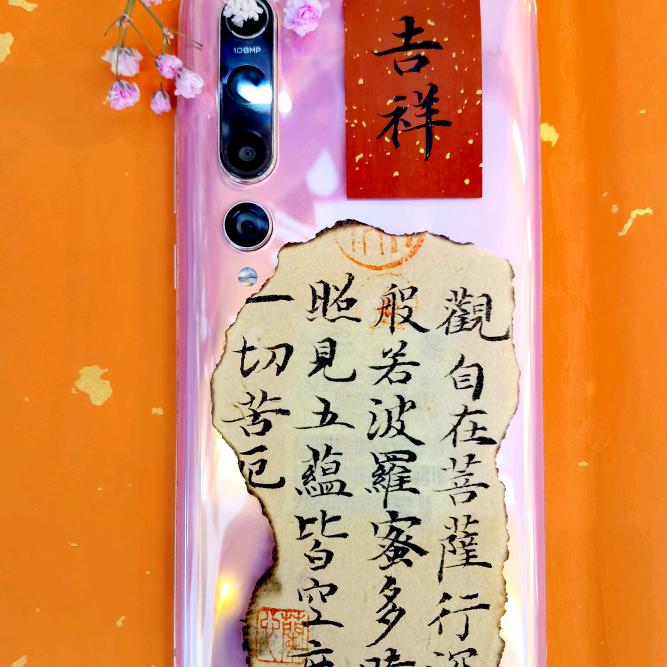 吉祥
108MP
觀自在菩薩行深
般若波羅蜜多時
照見五蘊皆空度
一切苦厄